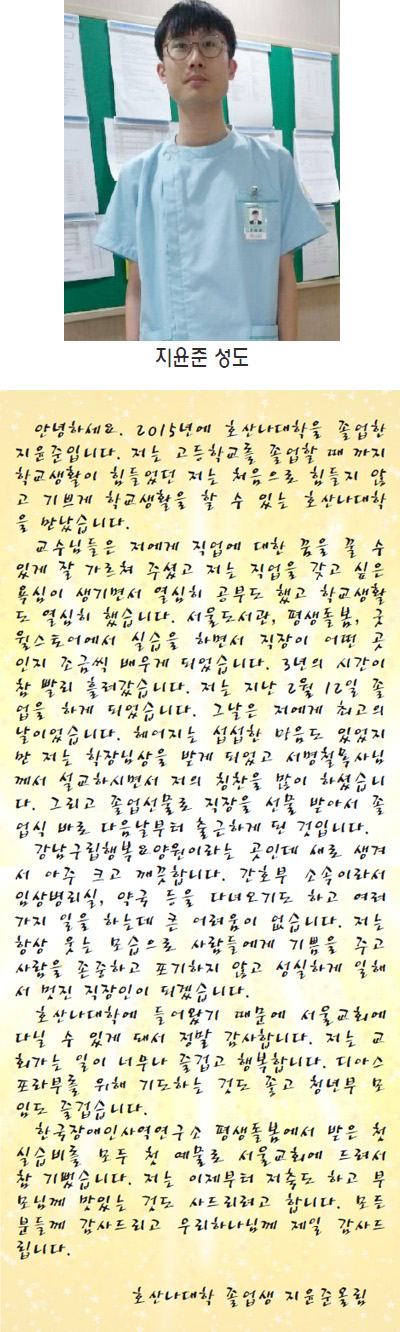 지윤준 성도
안녕하세요. 2015년에 호산나대학을 졸업한
지윤준입니다. 저는 고등학교를 졸업할 때 까지
학교생활이 힘들었던 저는 처음으로 힘들지 않
고 기쁘게 학교생활을 할 수 있는 호산나대학
을 만났습니다.
교수님들은 저에게 직업에 대한 꿈을 꿀 수
있게 잘 가르쳐 주셨고 저는 직업을 갖고 싶은
욕심이 생기면서 열심히 공부도 했고 학교생활
도 열심히 했습니다. 서울도서관, 평생돌봄, 굿
윌스토어에서 실습을 하면서 직장이 어떤 곳
인지 조금씩 배우게 되었습니다. 3년의 시간이
참 빨리 흘러갔습니다. 저는 지난 2월 12일 졸
업을 하게 되었습니다. 그날은 저에게 최고의
날이었습니다. 헤어지는 섭섭한 마음도 있었지
만 저는 학장님상을 받게 되었고 서명철목사님
께서 설교하시면서 저의 칭찬을 많이 하셨습니
다. 그리고 졸업선물로 직장을 선물 받아서 졸
업식 바로 다음날부터 출근하게 된 것입니다.
강남구립행복요양원이라는 곳인데 새로 생겨
서 아주 크고 깨끗합니다. 간호부 소속이라서
임상병리실, 약국 등을 다녀오기도 하고 여러
가지 일을 하는데 큰 어려움이 없습니다. 저는
항상 웃는 모습으로 사람들에게 기쁨을 주고
사람을 존중하고 포기하지 않고 성실하게 일해
서 멋진 직장인이 되겠습니다.
호산나대학에 들어왔기 때문에 서울교회에
다닐 수 있게 돼서 정말 감사합니다. 저는 교
회가는 일이 너무나 즐겁고 행복합니다. 디아스
포라부를 위해 기도하는 것도 좋고 청년부 모
임도 즐겁습니다.
한국장애인사역연구소 평생돌봄에서 받은 첫
실습비를 모두 첫 예물로 서울교회에 드려서
참 기뻤습니다. 저는 이제부터 저축도 하고 부
모님께 맛있는 것도 사드리려고 합니다. 모든
분들께 감사드리고 우리하나님께 제일 감사드
립니다.
호산나대학 졸업생 지윤준올림